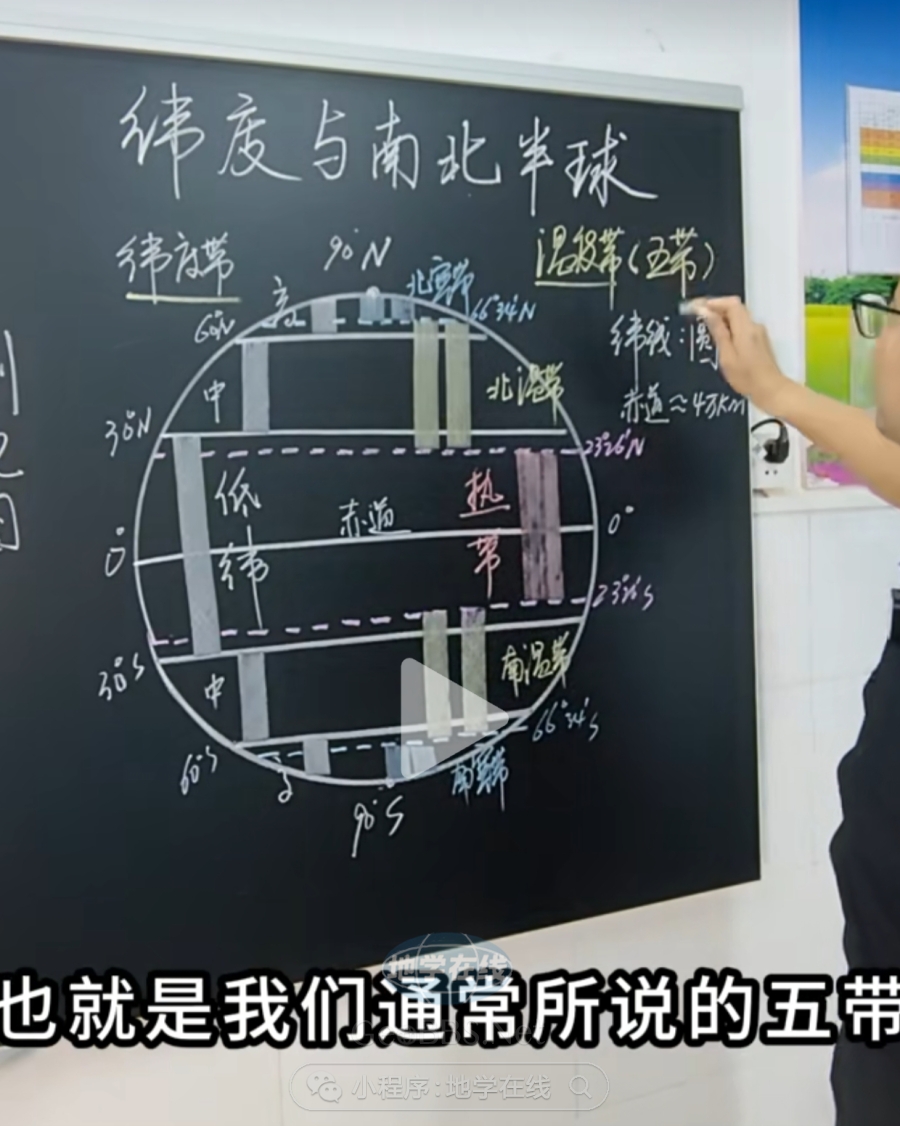 纬度与南北半球
纬度带
90°N
温度带(五带)
高
北寒带
60°N
66°34′N
纬线:圆
中
北温带
赤道≈4万km
30°N
23°26′N
低
纬
赤道
热
带
0°
0°
23°26′S
30°S
中
南温带
66°34′S
60°S
南寒带
90°S
地学在线
也就是我们通常所说的五带
小程序:地学在线